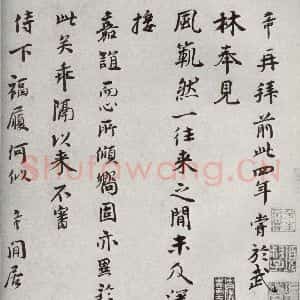 芾再拜前此四年嘗於武
林奉見
風範然一往來之間未及
接
嘉誼而心所傾嚮固亦異於
此矣乖隔以来不審
侍下福履何似 芾閒居
Shufawang.CN